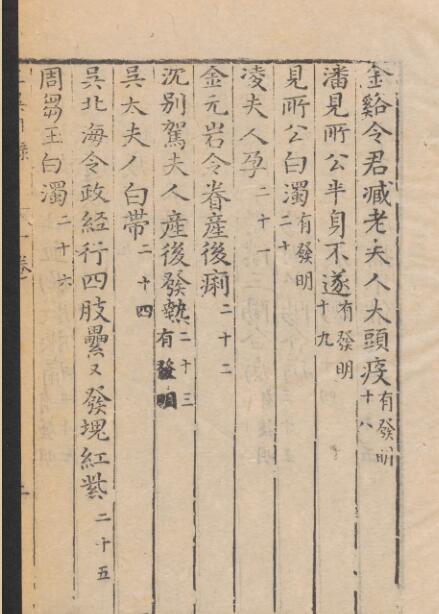 金谿令君臧老夫人大頭疫有發明十八
潘見所公半身不遂有發明十九
見所公白濁有發明二十
凌夫人孕二十一
金元岩令眷產後痢二十二
沉別駕夫人產後發熱二十三有發明
吳太夫人白帶二十四
吳北海令政經行四肢纍又發塊紅紫二十五
周芻玉白濁二十六
一卷